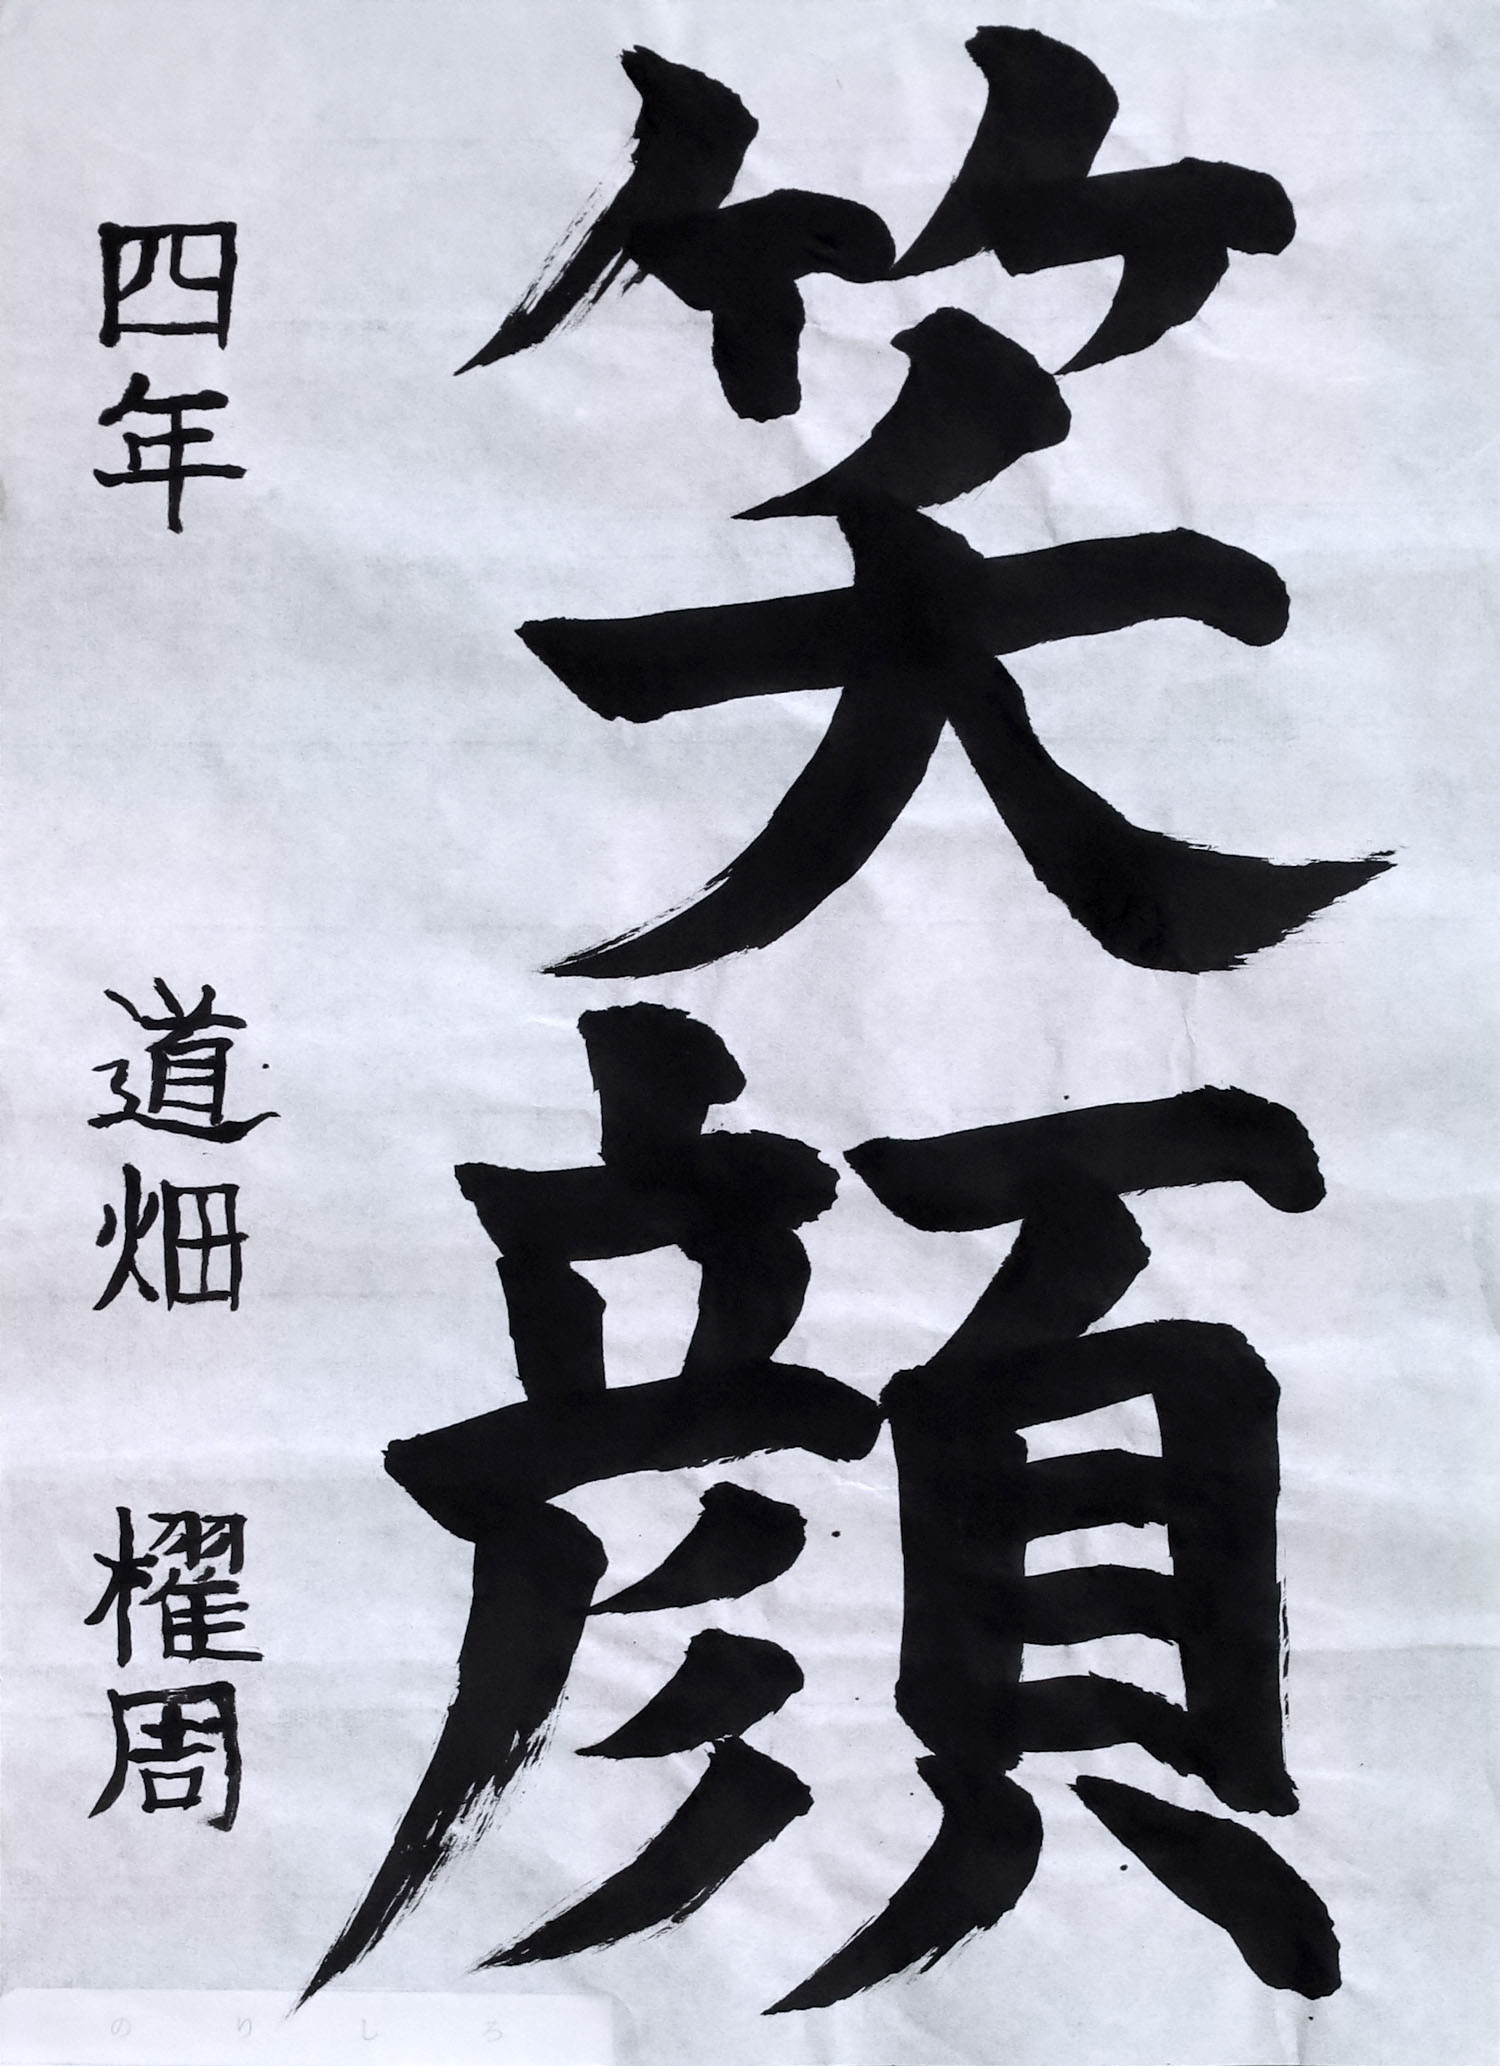 笑顔
四年 道畑 櫂周
のりしろ